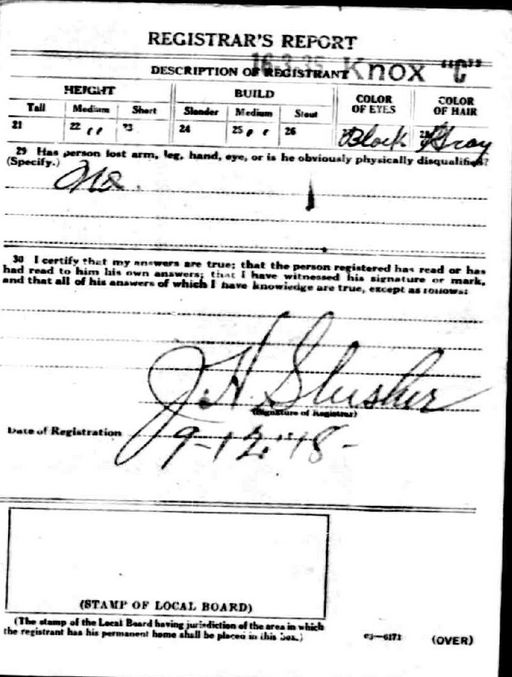 REGISTRAR'S REPORT
16.3.35 Knox "C"
DESCRIPTION OF REGISTRANT
HEIGHT BUILD COLOR OF EYES COLOR OF HAIR
Tall Medium Short Slender Medium Stout
21 22 " 23 24 25 " 26 Black Gray
29 Has person lost arm, leg, hand, eye, or is he obviously physically disqualified?
(Specify.) No.
30 I certify that my answers are true; that the person registered has read or has
had read to him his own answers; that I have witnessed his signature or mark,
and that all of his answers of which I have knowledge are true, except as follows:
J. H. Slusher
(Signature of Registrar)
Date of Registration 9-12-18-
(STAMP OF LOCAL BOARD)
(The stamp of the Local Board having jurisdiction of the area in which
the registrant has his permanent home shall be placed in this box.)
03-6171 (OVER)